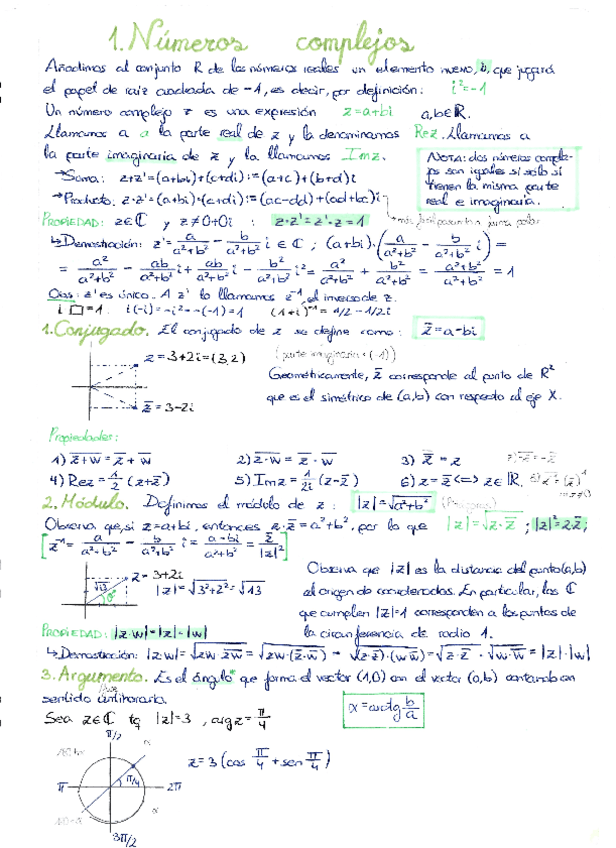 1. Números complejos
Añadimos al conjunto R de los números reales un elemento nuevo, i, que jugará
el papel de raíz cuadrada de -1, es decir, por definición: i²=-1
Un número complejo z es una expresión z=a+bi a,b∈R.
Llamamos a a la parte real de z y la denominamos Re z. Llamamos a
la parte imaginaria de z y la llamamos Im z.
NOTA: dos números comple-
jos son iguales si sólo si
tienen la misma parte
real e imaginaria.
→Suma: z+z'=(a+bi)+(c+di):=(a+c)+(b+d)i
→Producto: z·z'=(a+bi)·(c+di):=(ac-dd)+(ad+bc)i
PROPIEDAD: z∈C y z≠0+0i : z·z'=z'·z=1
↳Demostración: z'= a/(a²+b²) - b/(a²+b²) i ∈ C ; (a+bi)·(a/(a²+b²) - b/(a²+b²) i) =
= a²/(a²+b²) - ab/(a²+b²) i + ab/(a²+b²) i - b²/(a²+b²) i² = a²/(a²+b²) + b²/(a²+b²) = (a²+b²)/(a²+b²) = 1
Obs: z' es único. A z' lo llamamos z⁻¹, el inverso de z.
i □=1. i(-i)=-i²=-(-1)=1 (1+i)⁻¹=1/2-1/2i
1. Conjugado. El conjugado de z se define como: z̅=a-bi
z=3+2i=(3,2) (parte imaginaria·(-1))
z̅=3-2i
Geométricamente, z̅ corresponde al punto de R²
que es el simétrico de (a,b) con respecto al eje X.
Propiedades:
1) z̅+̅w̅=z̅+w̅ 2) z̅·̅w̅=z̅·w̅ 3) z̿=z
4) Re z=1/2 (z+z̅) 5) Im z=1/2i (z-z̅) 6) z=z̅ <=> z∈R
2. Módulo. Definimos el módulo de z: |z|=√(a²+b²)
Observa que, si z=a+bi, entonces z·z̅=a²+b², por lo que |z|=√(z·z̅) ; |z|²=z·z̅;
[z⁻¹= a/(a²+b²) - b/(a²+b²) i = (a-bi)/(a²+b²) = z̅/|z|²]
z=3+2i
|z|=√(3²+2²)=√13
√13
Observa que |z| es la distancia del punto (a,b)
al origen de coordenadas. En particular, los C
que cumplen |z|=1 corresponden a los puntos de
la circunferencia de radio 1.
PROPIEDAD: |z·w|=|z|·|w|
↳Demostración: |z·w|=√(zw·z̅w̅)=√(zw·(z̅·w̅))=√((z·z̅)·(w·w̅))=√(z·z̅)·√(w·w̅)=|z|·|w|
3. Argumento. Es el ángulo que forma el vector (1,0) con el vector (a,b) contando en
sentido antihorario.
α=arctg b/a
Sea z∈C tq |z|=3 , arg z=π/4
π/2
α
z=3(cos π/4 + sen π/4)
π
π/4
2π
α
3π/2